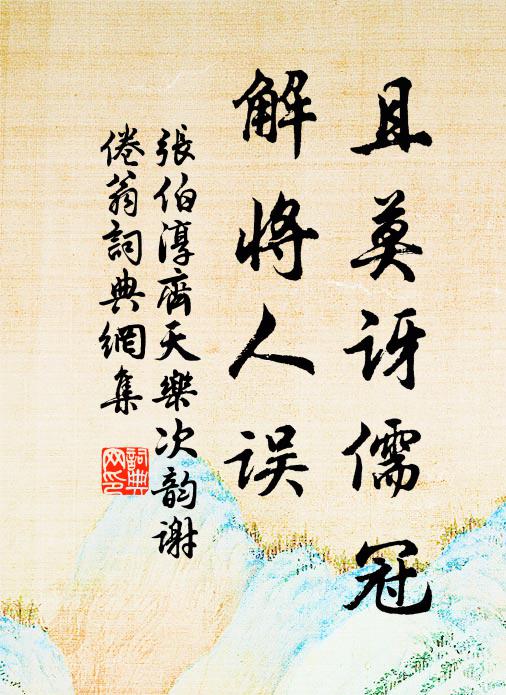 且莫讶儒冠
解将人误
張伯淳齊天樂次韵谢
倦翁詞典網集
詞典网印